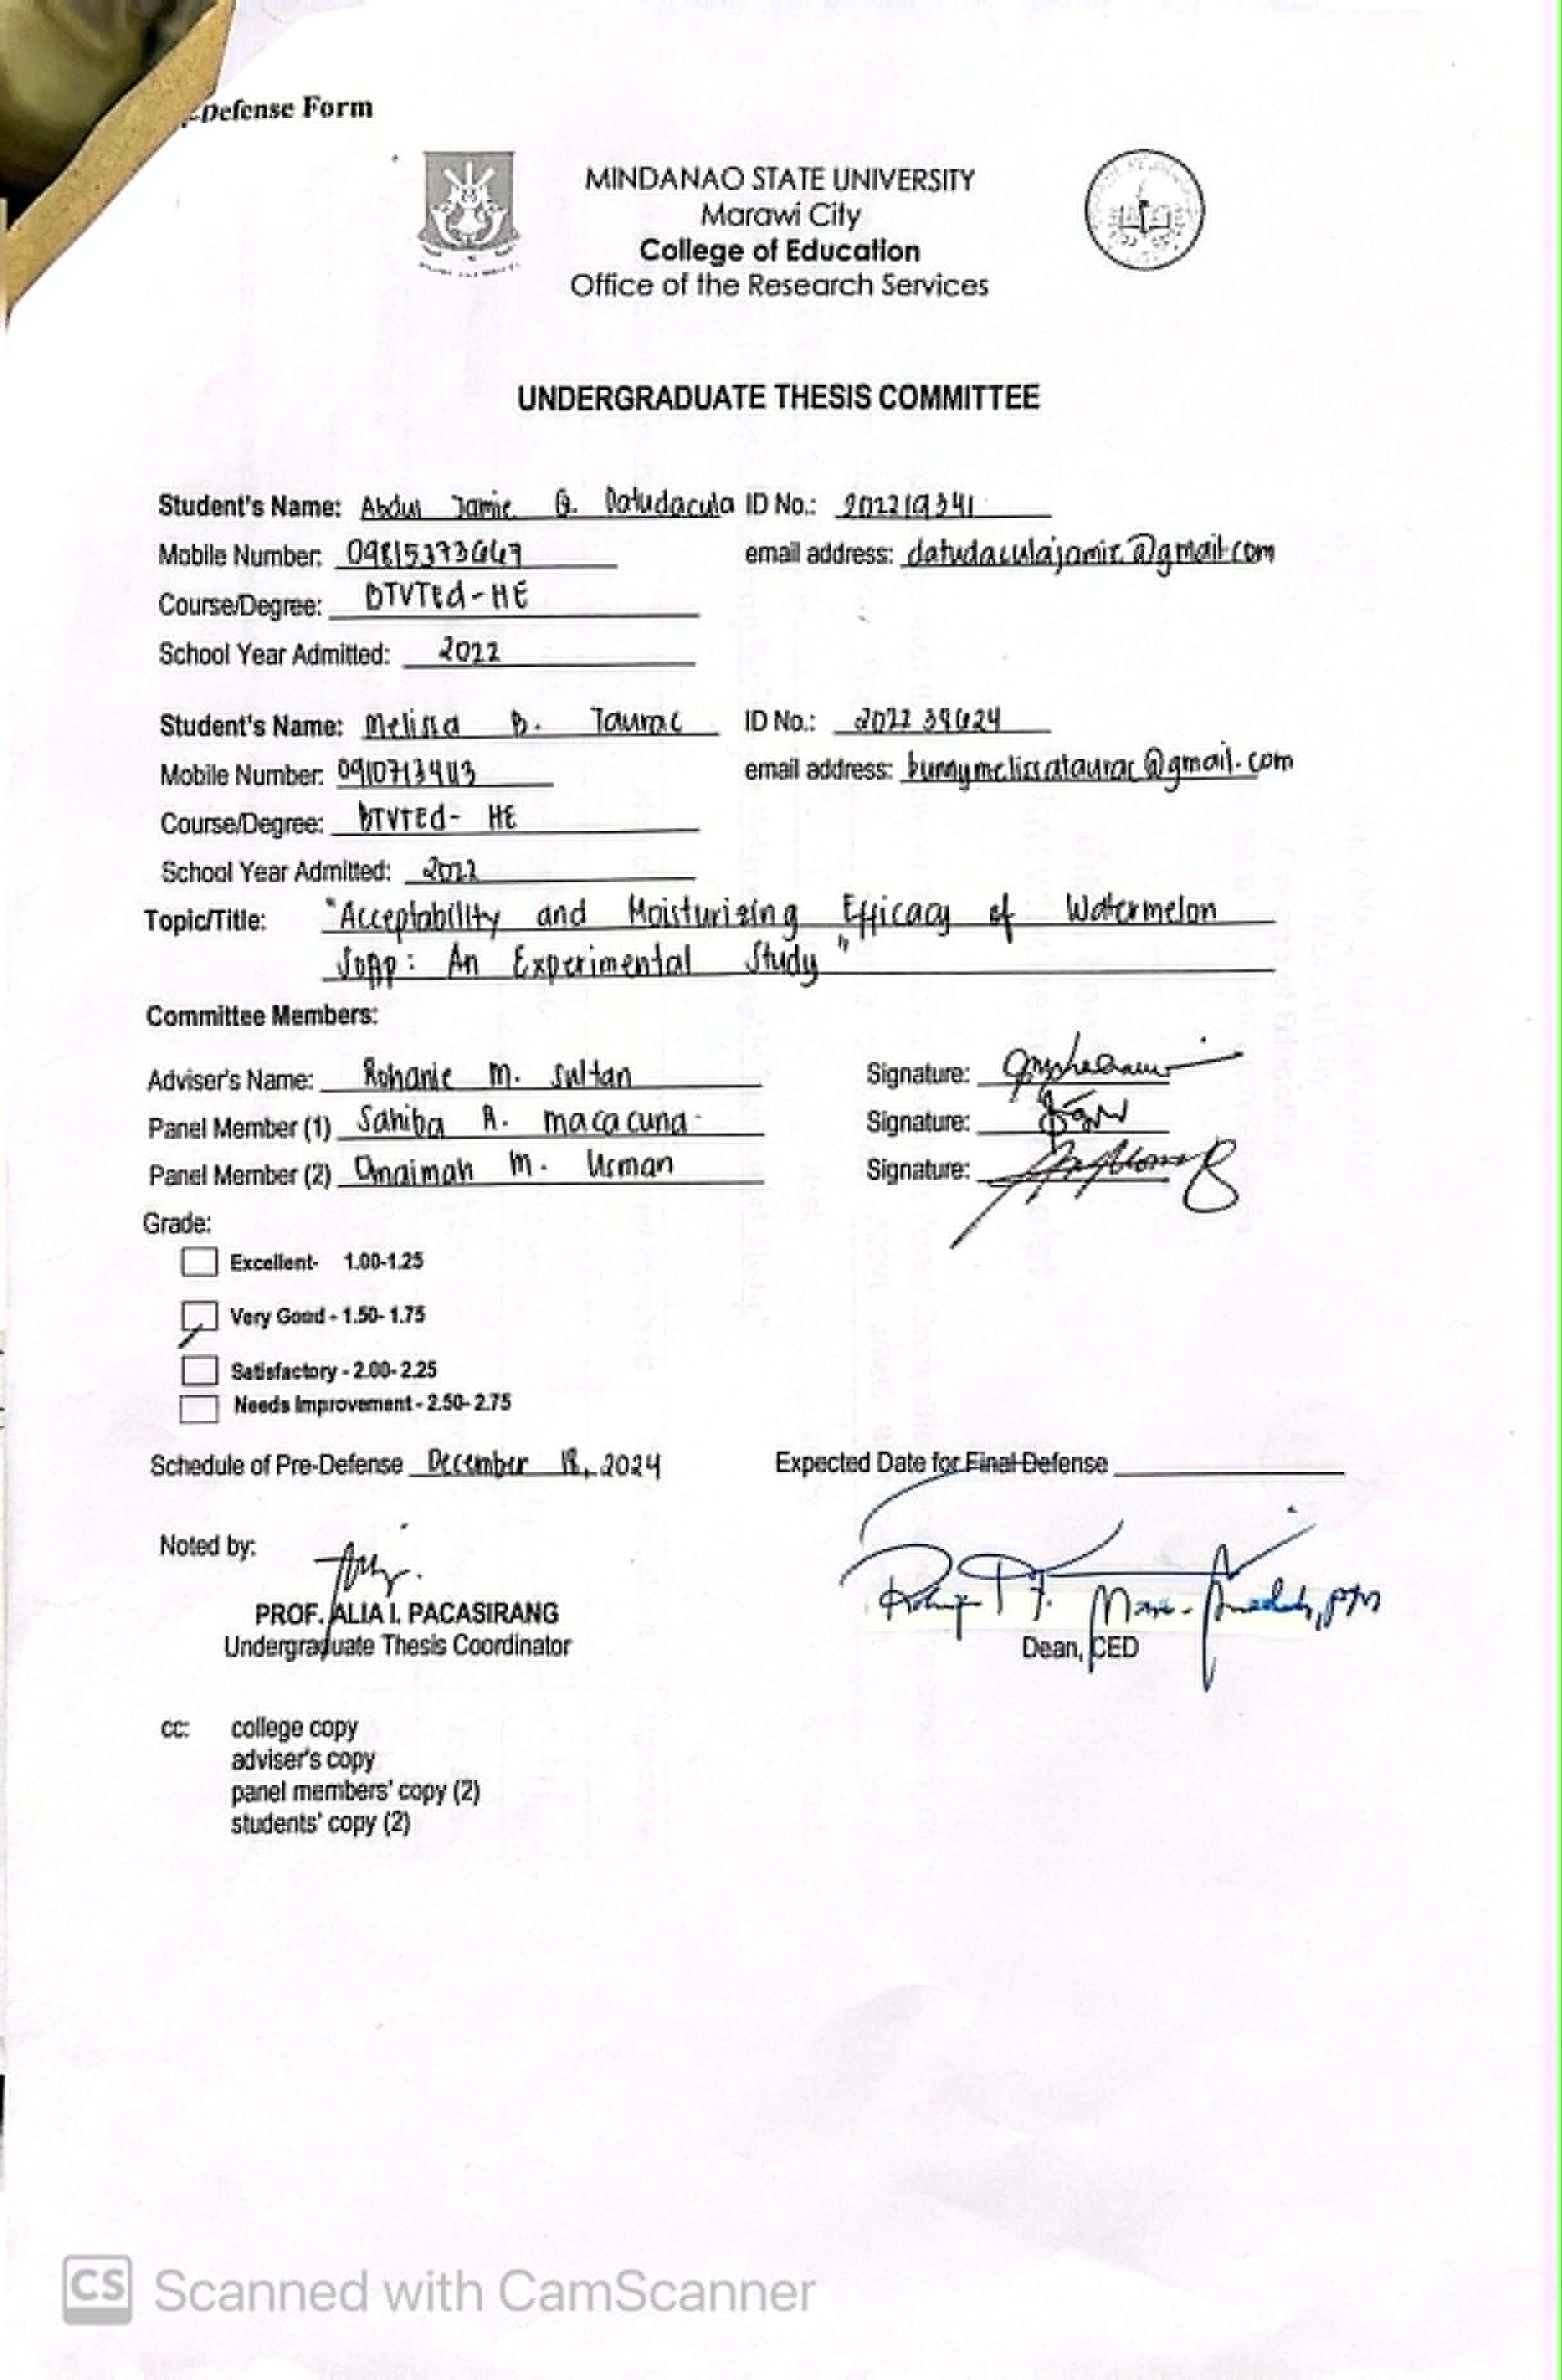 Defense Form
MINDANAO STATE UNIVERSITY
Marawi City
College of Education
Office of the Research Services
UNDERGRADUATE THESIS COMMITTEE
Student's Name: Abdul Jamic G. Datudacula ID No.: 202219341
Mobile Number: email address: datudaculajamic@gmail.com
Course/Degree: BTVTEd-HE
School Year Admitted: 2022
Student's Name: Melissa B. Taurac ID No.: 2022 39624
Mobile Number: email address: bunnymelissataurac@gmail.com
Course/Degree: BTVTEd- HE
School Year Admitted: 2022
Topic/Title: "Acceptability and Moisturizing Efficacy of Watermelon
Soap: An Experimental Study"
Committee Members:
Adviser's Name: Rohanie M. Sultan Signature:
Panel Member (1) Sahiba A. Macacuna Signature:
Panel Member (2) Onaimah M. Usman Signature:
Grade:
Excellent- 1.00-1.25
Very Good - 1.50- 1.75
Satisfactory - 2.00- 2.25
Needs Improvement - 2.50- 2.75
Schedule of Pre-Defense December 18, 2024 Expected Date for Final Defense
Noted by:
PROF. ALIA I. PACASIRANG
Undergraduate Thesis Coordinator Dean, CED
cc: college copy
adviser's copy
panel members' copy (2)
students' copy (2)
CS Scanned with CamScanner